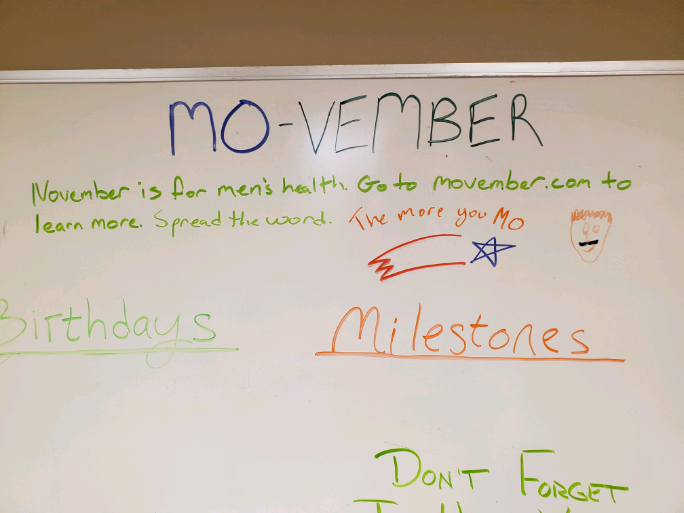 MO-VEMBER
November is for men's health. Go to movember.com to
learn more. Spread the word. The more you Mo
Birthdays
Milestones
DON'T FORGET